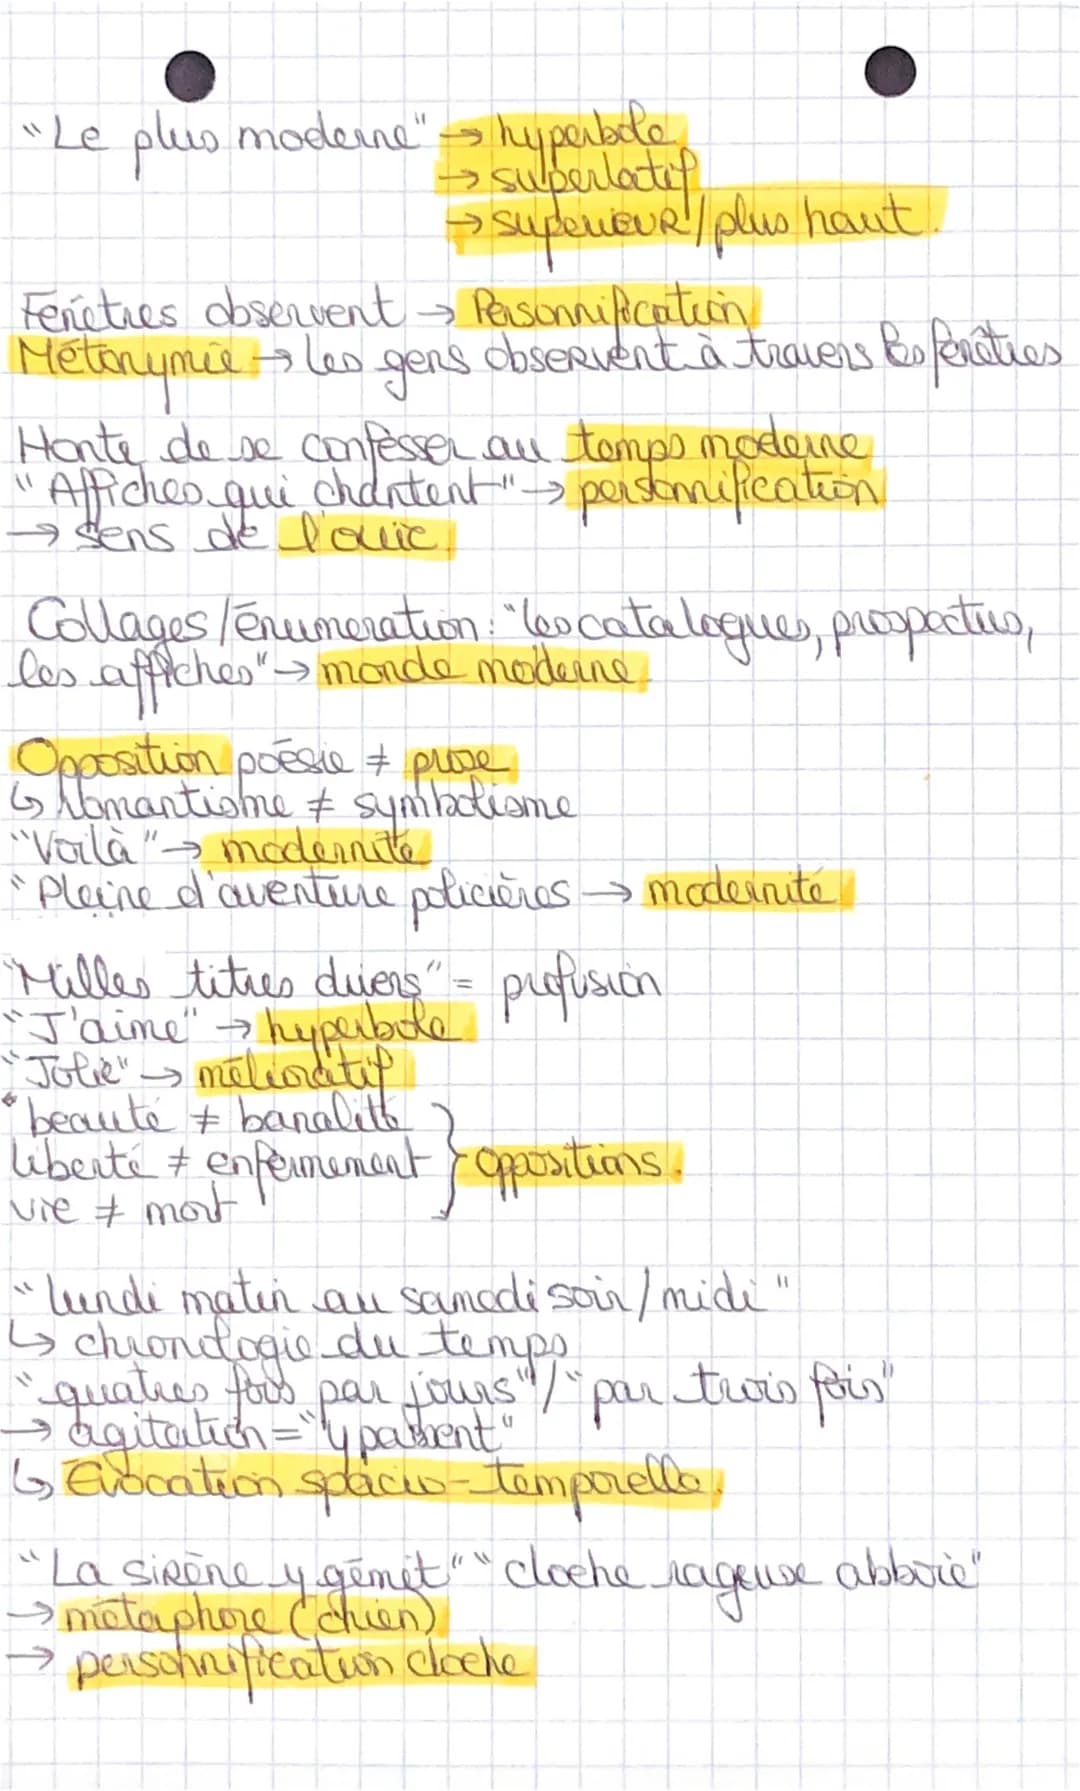 "Le plus moderne" → hyperbole
→ superlatif
→ supérieur/plus haut.
Fenêtres observent → Personnification
Métonymie → les gens observent à travers les fenêtres
Honte de se confesser au temps moderne
"Affiches qui chantent" → personnification
→ sens de l'ouïe
Collages/énumeration : "les catalogues, prospectus,
les affiches" → monde moderne
Opposition poésie ≠ prose
↳ Romantisme ≠ symbolisme
"Voilà" → modernité
"Pleine d'aventure policières → modernité
"Milles titres divers" = profusion
"J'aime" → hyperbole
"Jolie" → mélioratif
beauté ≠ banalité
liberté ≠ enfermement } oppositions.
vie ≠ mort
"lundi matin au samedi soir/midi"
↳ chronologie du temps
"quatres fois par jours"/"par trois fois"
→ agitation = "y passent"
↳ Évocation spacio-temporelle.
"La sirène y gémit" "cloche rageuse abboie"
→ métaphore (chien)
→ personnification cloche